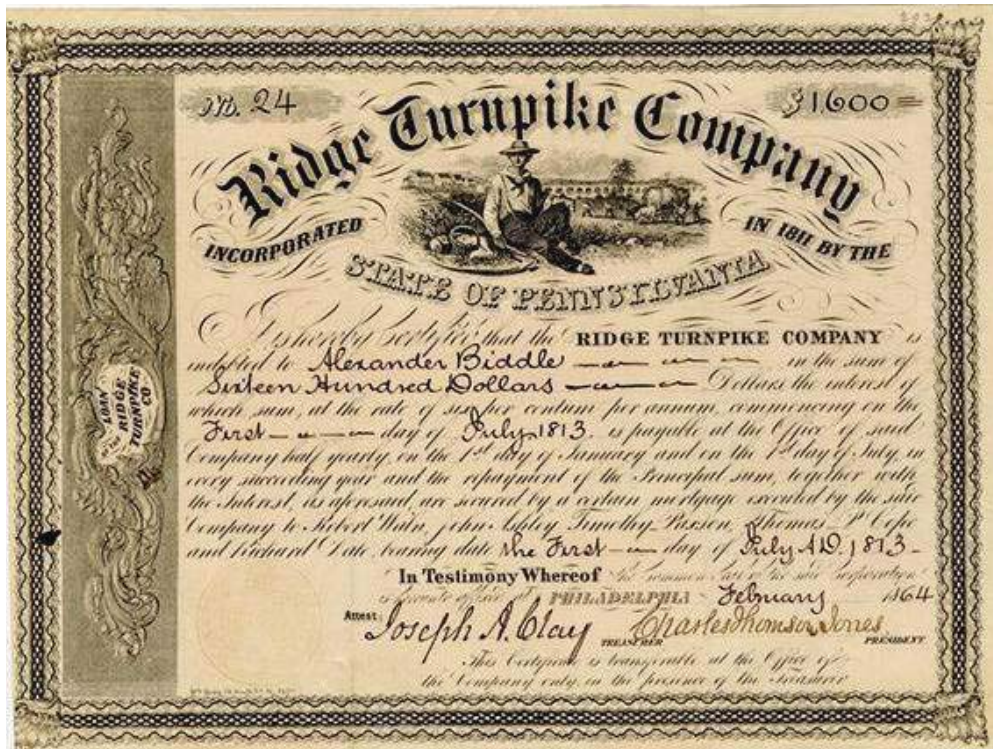 No. 24
$1600
Ridge Turnpike Company
INCORPORATED
IN 1811 BY THE
STATE OF PENNSYLVANIA
that the RIDGE TURNPIKE COMPANY is
indebted to Alexander Biddle in the sum of
Sixteen Hundred Dollars Dollars the interest of
which sum, at the rate of six per centum per annum, commencing on the
First day of July 1813. is payable at the Office of said
Company half yearly on the 1st day of January and on the 1st day of July, in
every succeeding year and the repayment of the Principal sum, together with
the Interest, as aforesaid are secured by a certain mortgage executed by the said
Company to Robert Waln, John Ashley Timothy Paxson, Thomas P. Cope
and Richard bearing date the First day of July A.D. 1813
In Testimony Whereof the common
PHILADELPHIA February 1864
Attest:
Joseph A. Clay
TREASURER
Charles Thomson Jones
PRESIDENT
This Certificate is transferable at the Office of
the Company only, in the presence of the Treasurer
LOAN
OF THE
RIDGE
TURNPIKE
CO